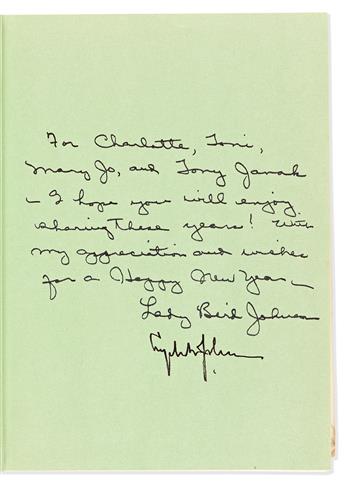 For Charlotte, Toni,
Mary Jo, and Tony Janak
- I hope you will enjoy
sharing these years! With
my appreciation and wishes
for a Happy New Year -
Lady Bird Johnson
Lyndon B. Johnson